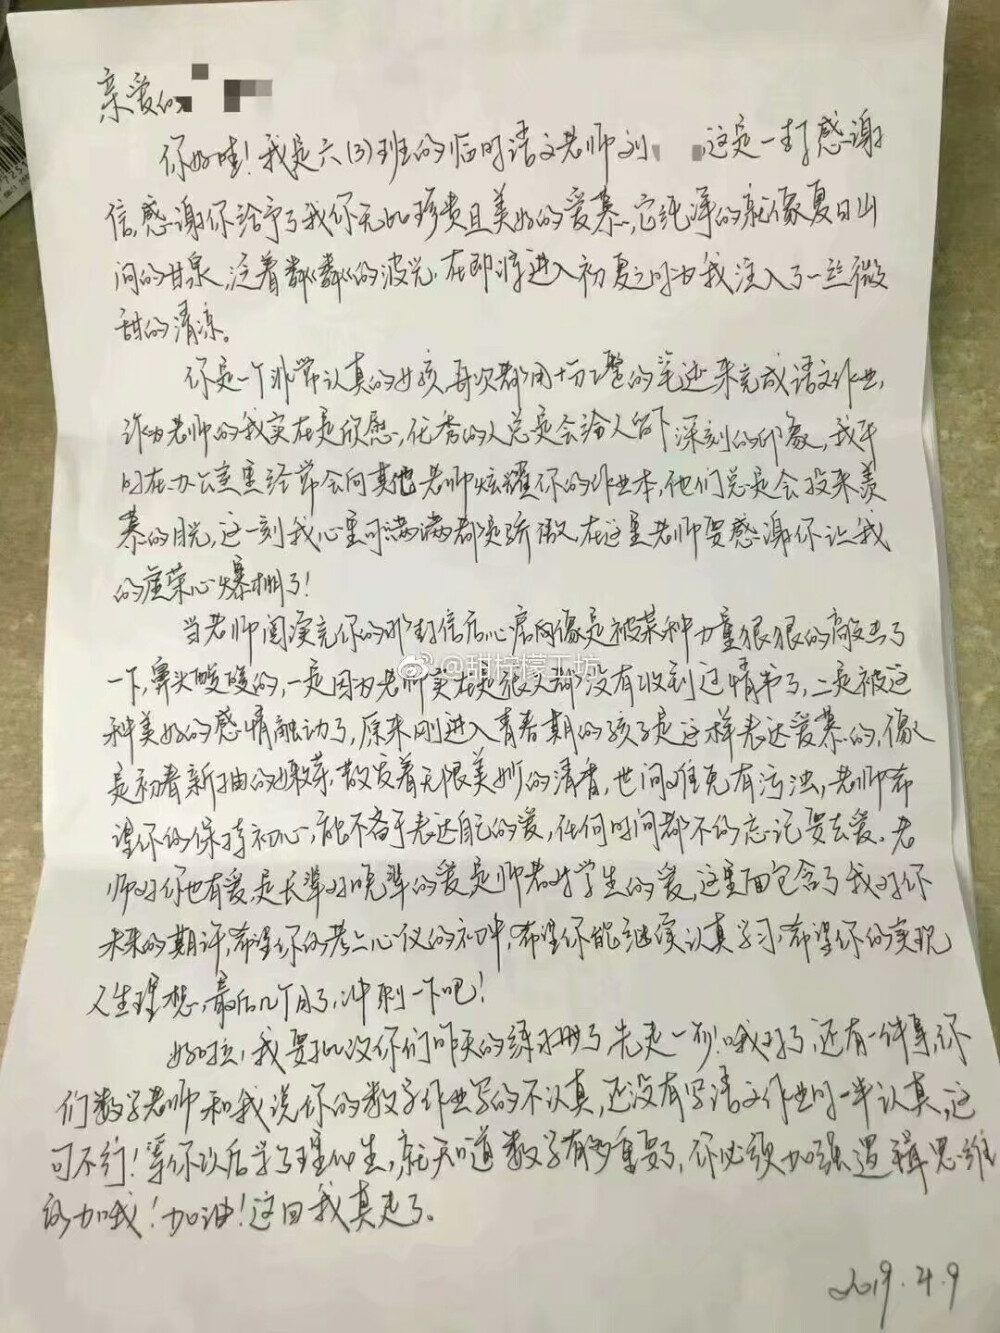 亲爱的
你好哇！我是六(3)班的临时语文老师刘 ，这是一封感谢
信，感谢你给予了我你无比珍贵且美好的爱慕，它纯净的就像夏日山
间的甘泉，泛着粼粼的波光，在即将进入初夏之时为我注入了一丝微
甜的清凉。
你是一个非常认真的女孩，每次都用十分工整的笔迹来完成语文作业，
作为老师的我实在是欣慰，优秀的人总是会给人留下深刻的印象，我平
时在办公室里经常会向其他老师炫耀你的作业本，他们总是会投来羡
慕的目光，这一刻我心里可满满都是骄傲，在这里老师要感谢你让我
的虚荣心爆棚了！
当老师阅读完你的那封信后心房间像是被某种力量狠狠的敲击了
一下，鼻头酸酸的，一是因为老师实在是很久都没有收到过情书了，二是被这
种美好的感情融动了，原来刚进入青春期的孩子是这样表达爱慕的，像
是初春新抽的嫩芽，散发着无限美妙的清香，世间难免有污浊，老师希
望你的保持初心，能不吝于表达自己的爱，任何时间都不的忘记要去爱。老
师对你也有爱，是长辈对晚辈的爱是师者对学生的爱，这里面包含了我对你
未来的期许，希望你的考上心仪的初中，希望你能继续认真学习，希望你的实现
人生理想，最后几个月了，冲刺一下吧！
好啦，我要批改你们昨天的练习册了，先走一步！哦对了，还有一件事，你
们数学老师和我说你的数学作业写的不认真，还没有写语文作业时一半认真，这
可不行！等你以后学了理化生，就知道数学有多重要了，你必须加强逻辑思维
的加哦！加油！这回我真走了。
2019.4.9
@甜柠檬工坊